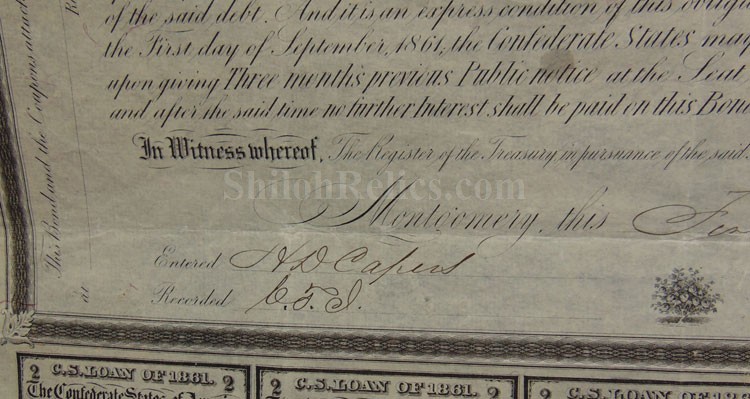 of the said debt. And it is an express condition of this oblig
the First day of September, 1861, the Confederate States may
upon giving Three months previous Public notice at the Seat
and after the said time no further Interest shall be paid on this Bond
In Witness whereof, The Register of the Treasury in pursuance of the said
ShilohRelics.com
Montgomery, this
Entered H D Capers
Recorded C. T. J.
This Bond and the Coupons attach
at
2 C.S. LOAN OF 1861. 2
The Confederate States of
2 C.S. LOAN OF 1861. 2
2 C.S. LOAN OF